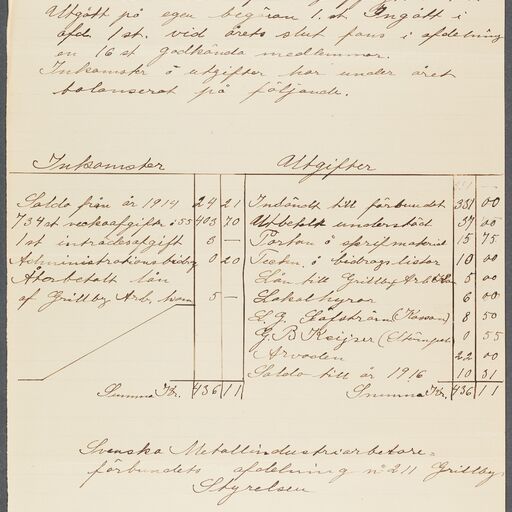 Utgått på egen begäran 1. st. Ingått i
afd. 1 st. vid årets slut fans i afdelning
en 16 st godkända medlemmar.
Inkomster ö utgifter har under året
balanserat på följande.
Inkomster
Utgifter
Saldo från år 1914 24 21
734 st veckoafgifter i 55 403 70
1 st inträdesafgift 3 —
Administrations bidrag 0 20
Återbetalt lån
af Grillby Arb. kom 5 —
Summa Kr. 436 11
Insändt till förbundet 331 00
Utbetalt understöd 37 00
Porton ö skrifmaterial 15 75
Teckn. ö bidrags listor 10 00
Lån till Grillby Arb. 5 00
Lokal hyror 6 00
L. G. Löfström (Kassan) 8 50
G. B Keijser 0 55
Arvoden 22 00
Saldo till år 1916 10 31
Summa Kr. 436 11
Svenska Metallindustriarbetare=
förbundets afdelning nº 211 Grillby.
Styrelsen